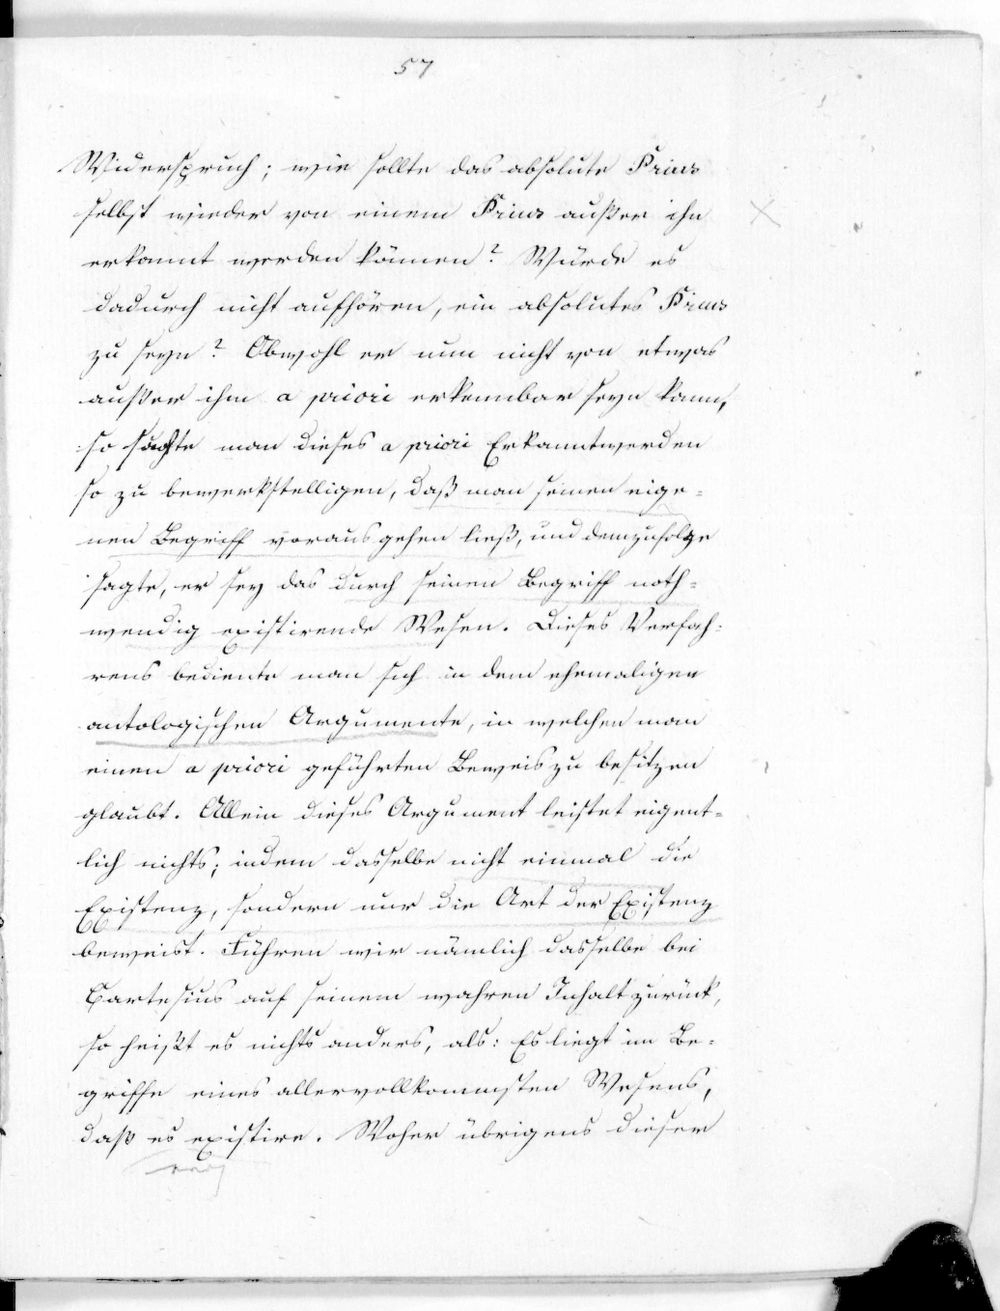 57
Widerspruch; wie sollte das absolute Prius
selbst wieder von einem Prius außer ihn
erkannt werden können? Würde es
dadurch nicht aufhören, ein absolutes Prius
zu seyn? Obwohl er nun nicht von etwas
außer ihm a priori erkennbar seyn kann,
so suchte man dieses a priori Erkanntwerden
so zu bewerkstelligen, daß man seinen eige=
nen Begriff vorausgehen ließ, und demzufolge
sagte, er sey das durch seinen Begriff noth=
wendig existirende Wesen. Dieses Verfah=
rens bediente man sich in dem ehemaligen
ontologischen Argumente, in welchen man
einen a priori geführten Beweis zu besitzen
glaubt. Allein dieses Argument leistet eigent=
lich nichts; indem dasselbe nicht einmal die
Existenz, sondern nur die Art der Existenz
beweist. Führen wir nämlich dasselbe bei
Cartesius auf seinem wahren Inhalt zurück,
so heißt es nichts anders, als: Es liegt im Be=
griffe eines allervollkommsten Wesens,
daß es existire. Woher übrigens dieser